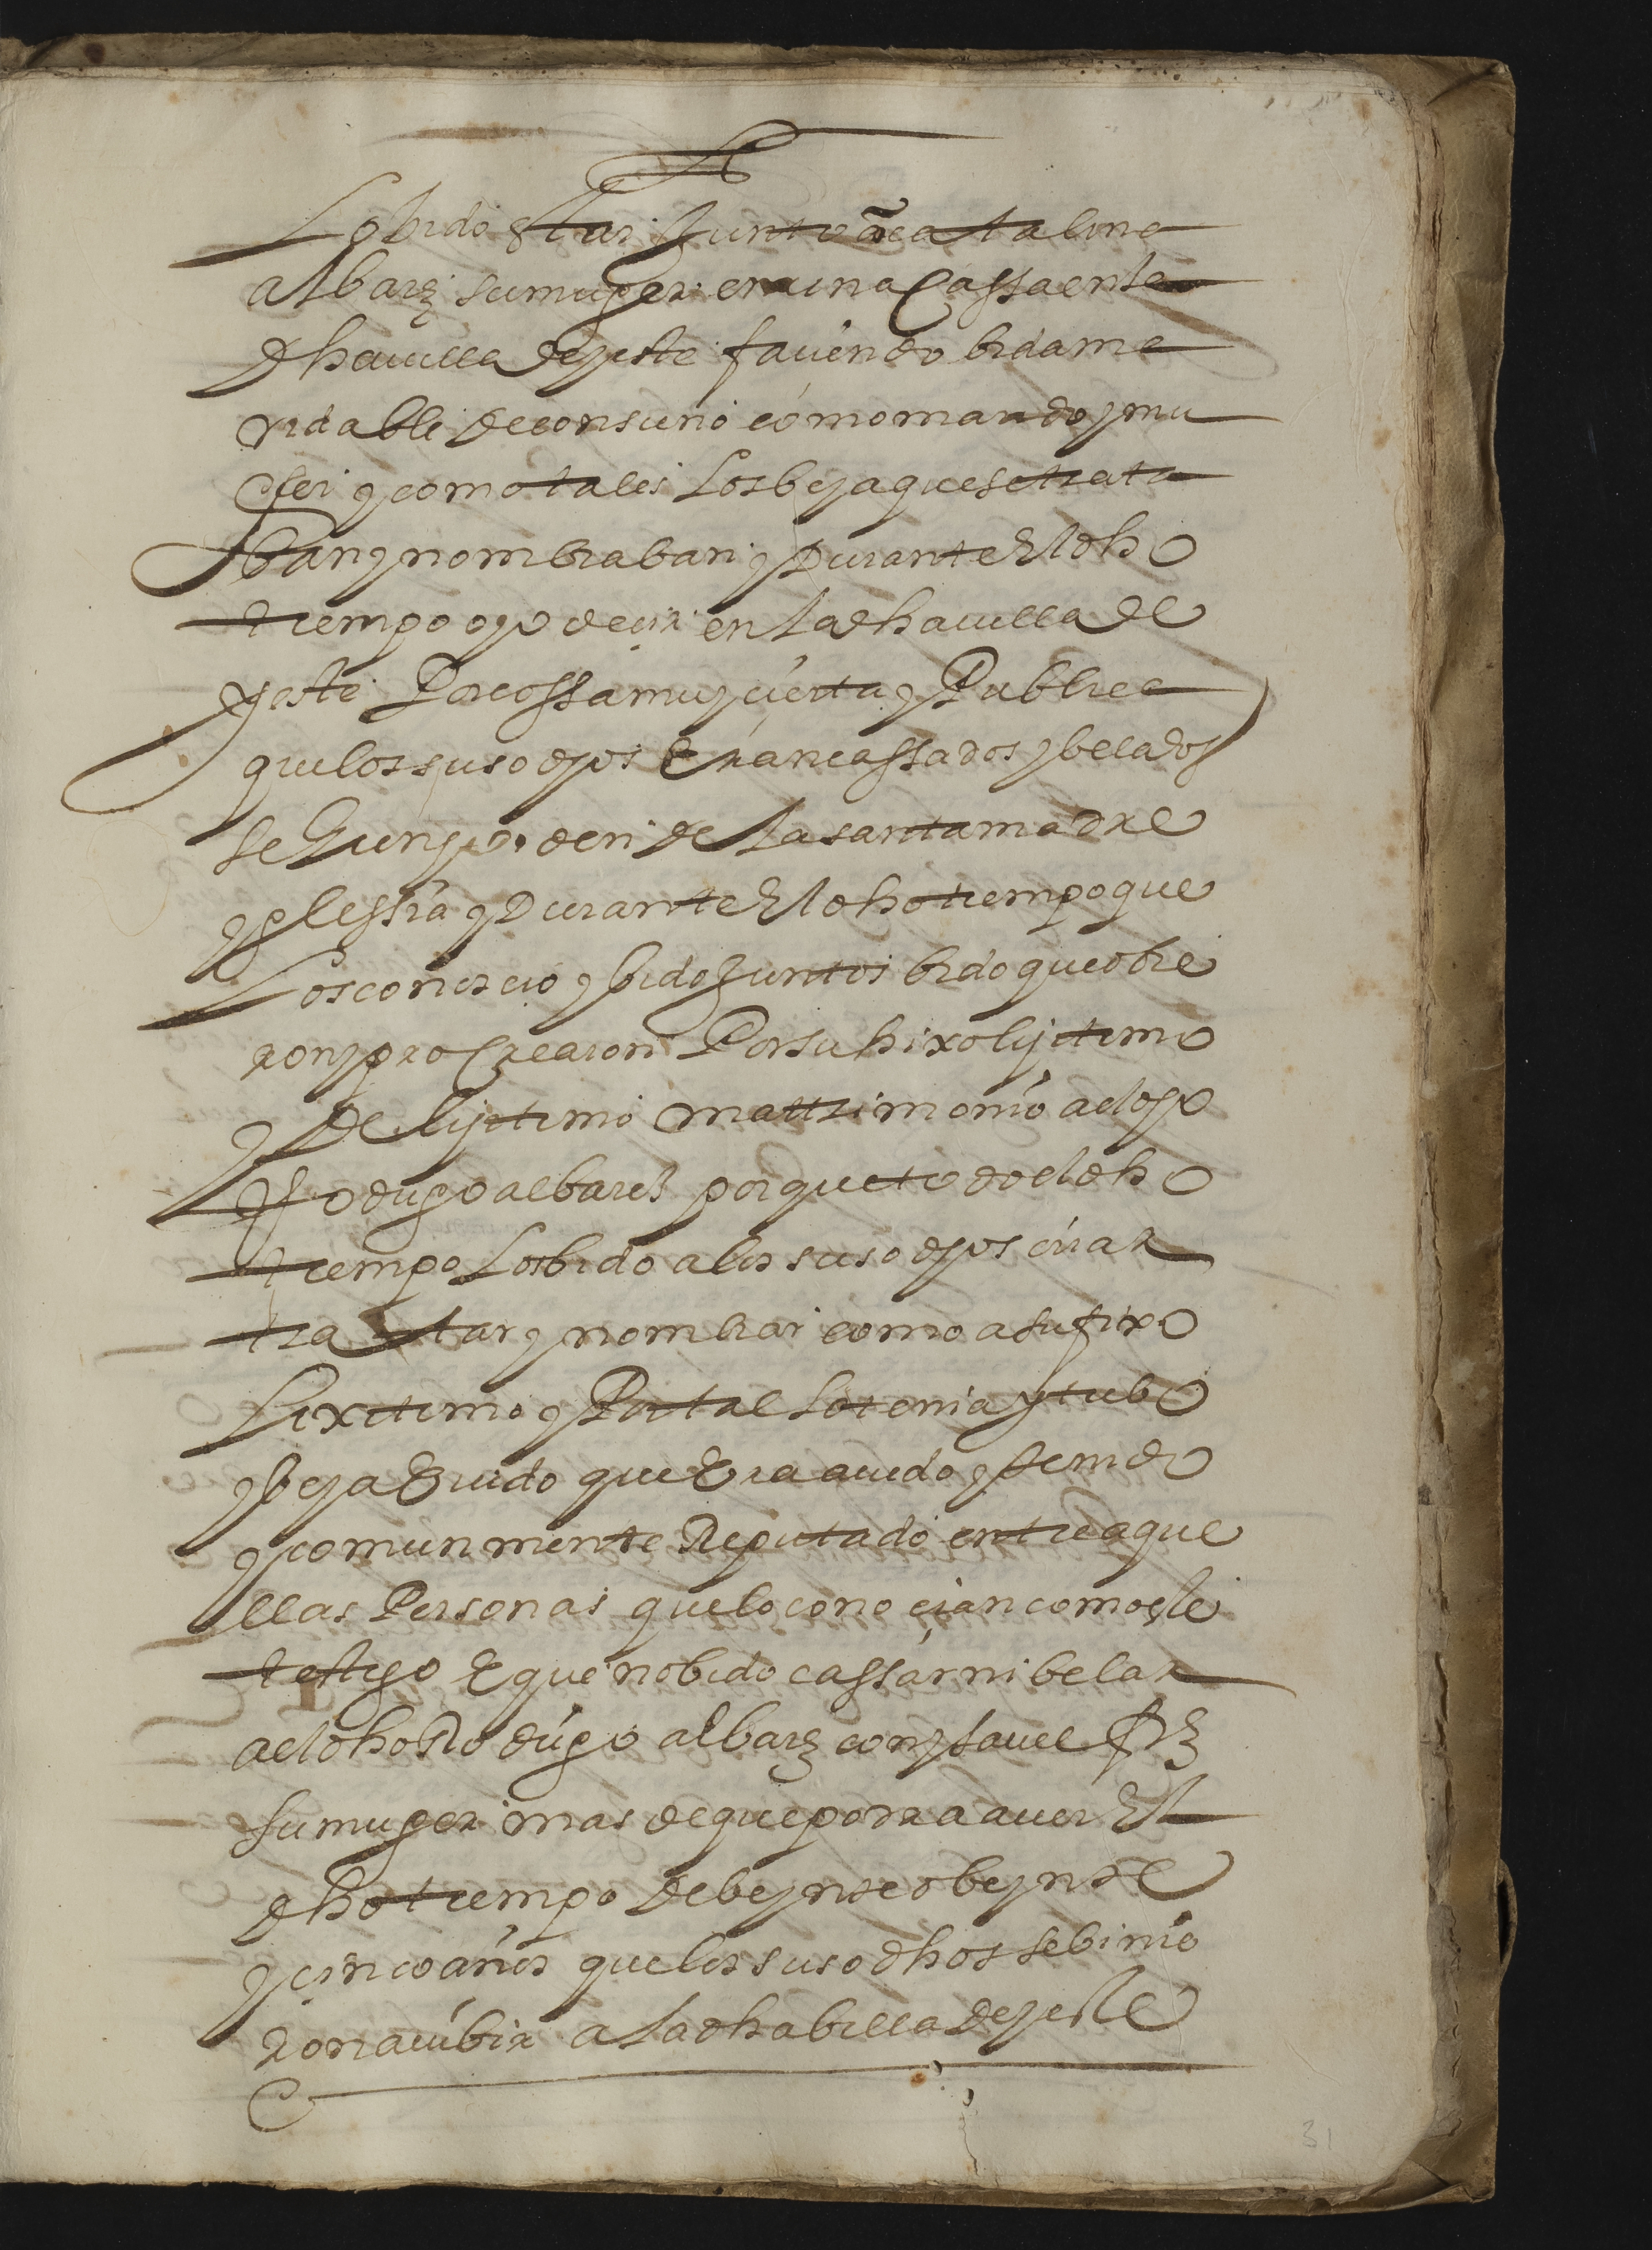 Lo bido estar Junto a catalina
albarez su muger en una cassa en la
dha uilla de yeste faciendo bida ma
ridable de consuno como marido y mu
ger y como tales los beya que se trata
ban y nombraban y Durante El dho
tiempo oyo decir en la dha uilla de
yeste Por cossa muy çierta y Publica
que los suso dhos Eran cassados y belados
segun horden de la santa madre
yglessia y Durante El dho tiempo que
Los conoscio y bido Juntos bido que obie
ron y procrearon Por su hixo lijitimo
y De lijitimo mattrimonio a el dho
Rodrigo albarez porque todo el dho
tiempo Los bido a los suso dhos criar
tratar y nombrar como a su hixo
Lixitimo y Por tal lo tenia y tubo
y beya E vido que Era auido y tenido
y comunmente Reputado entre aque
llas Personas que lo conoçian como este
testigo E que no bido cassar ni belar
a el dho Rodrigo albarez con ysauel
su muger mas de que podra auer El
dho tiempo de beynte o beynte
y cinco años que los suso dhos se binie
ron a uibir a la dha billa de yeste
31